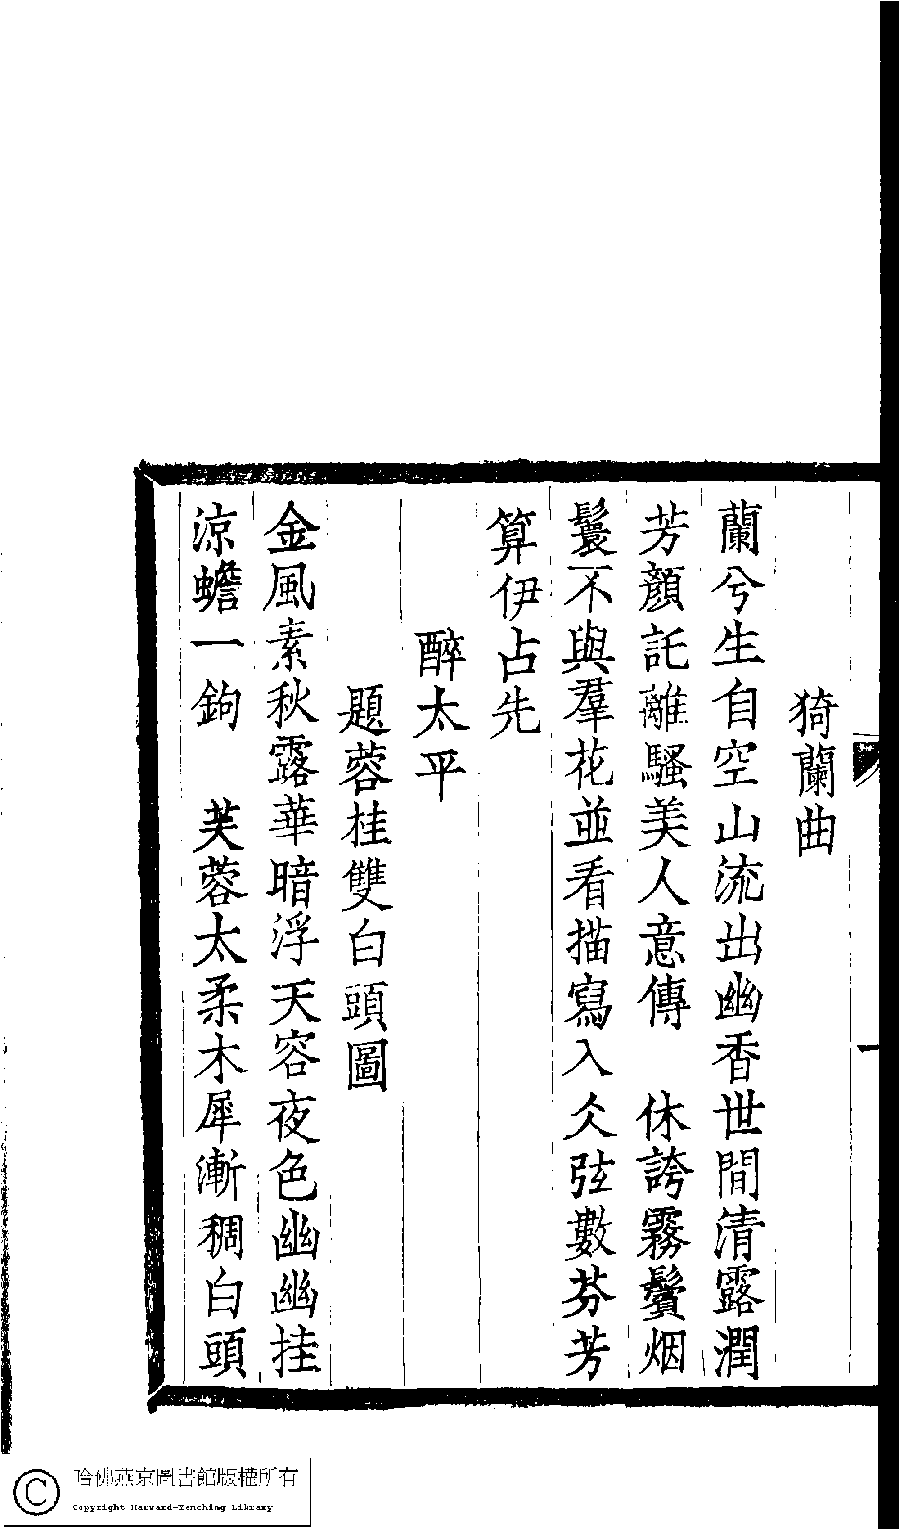 猗蘭曲
蘭兮生自空山流出幽香世間清露潤
芳顏託離騷美人意傳　休誇霧鬢烟
鬟不與羣花並看描寫入冰弦數芬芳
算伊占先
醉太平
題蓉桂雙白頭圖
金風素秋露華暗浮天容夜色幽幽挂
涼蟾一鉤　芙蓉太柔木犀漸稠白頭
哈佛燕京圖書館版權所有
Copyright Harvard-Yenching Library